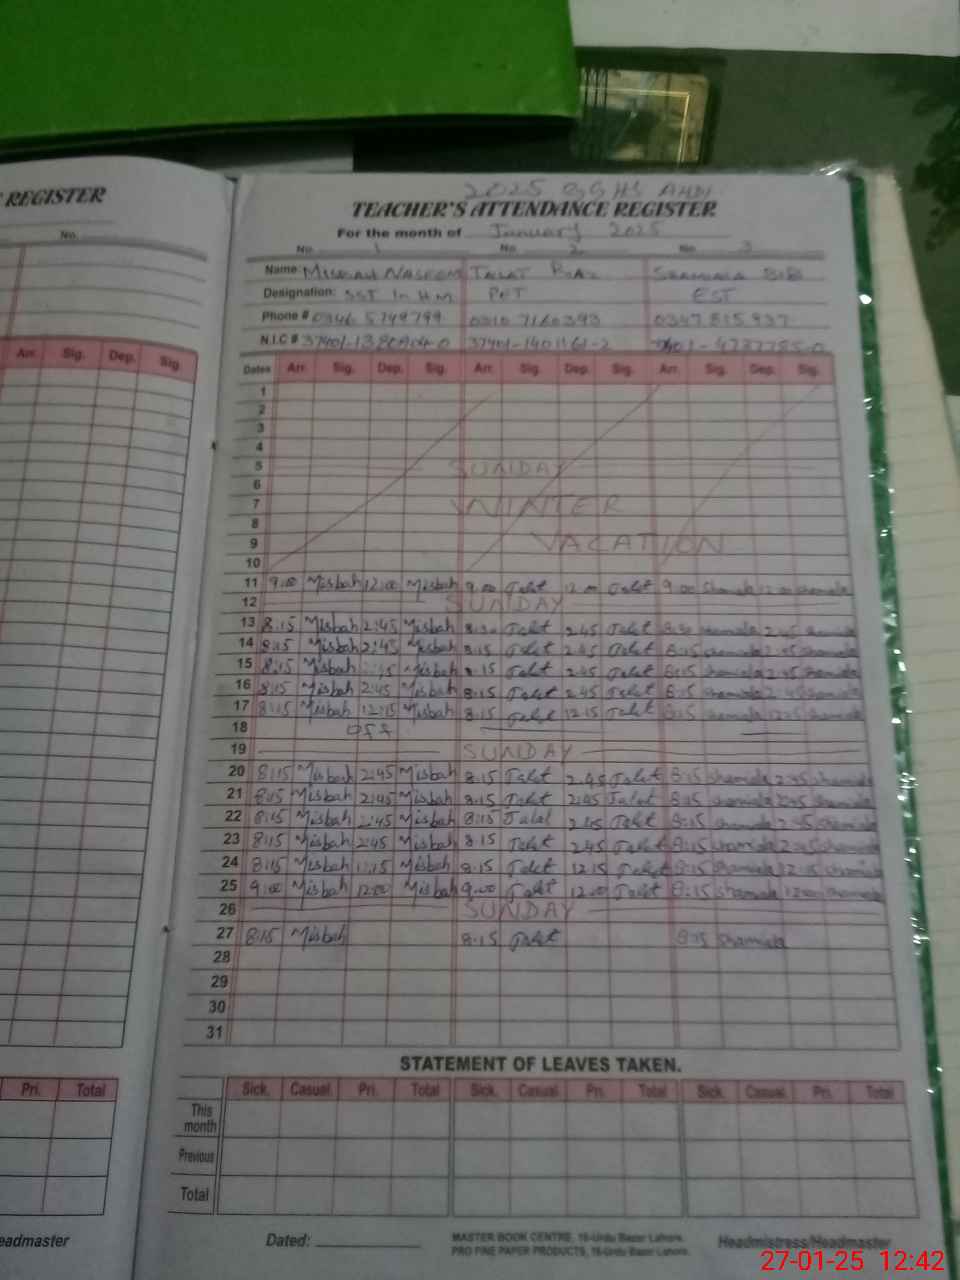 REGISTER
No.
Arr. Sig. Dep. Sig
Pri. Total
eadmaster
2025 GGHS
TEACHER'S ATTENDANCE REGISTER
For the month of January 2025
No. 1 No. 2 No. 3
Name: Misbah Naseem Talat Shamiala BiBi
Designation: SST In H.M PET EST
Phone # 0346 5749799 0310 7160393 0347 815 937
N.I.C # 37401- 37401-1401161-2
Dates Arr. Sig. Dep. Sig. Arr. Sig. Dep. Sig. Arr. Sig. Dep. Sig.
1
2
3
4
5 SUNDAY
6
7 WINTER
8
9 VACATION
10
11 9:00 Misbah 12:00 Misbah 9.00 Talat 12.00 Talat 9.00 Shamiala 12.00 Shamiala
12 SUNDAY
13 8:15 Misbah 2:45 Misbah Talat 2.45 Talat Shamiala 2.45 Shamiala
14 8:15 Misbah 2:45 Misbah 8.15 Talat 2.45 Talat 8:15 Shamiala 2:45 Shamiala
15 8:15 Misbah Misbah 8.15 Talat 2.45 Talat 8:15 Shamiala 2.45 Shamiala
16 8:15 Misbah 2:45 Misbah 8:15 Talat 2.45 Talat 8:15 Shamiala 2:45 Shamiala
17 8:15 Misbah 12:15 Misbah 8.15 Talat 12.15 Talat 8:15 Shamiala 12:15 Shamiala
18 Off
19 SUNDAY
20 8:15 Misbah 2:45 Misbah 8.15 Talat 2.45 Talat 8:15 Shamiala 2:45 Shamiala
21 8:15 Misbah 2:45 Misbah 8.15 Talat 2:45 Talat 8:15 Shamiala 2:45 Shamiala
22 8:15 Misbah 2:45 Misbah 8:15 Talat 2.45 Talat 8:15 Shamiala 2:45 Shamiala
23 8:15 Misbah 2:45 Misbah 8.15 Talat 2.45 Talat 8:15 Shamiala 2:45 Shamiala
24 8:15 Misbah Misbah 8.15 Talat 12.15 Talat 8:15 Shamiala 12:15 Shamiala
25 9:00 Misbah 12:00 Misbah 9.00 Talat 12.00 Talat 8:15 Shamiala 12:00 Shamiala
26 SUNDAY
27 8:15 Misbah 8.15 Talat 8:15 Shamiala
28
29
30
31
STATEMENT OF LEAVES TAKEN.
Sick. Casual. Pri. Total Sick. Casual. Pri. Total Sick. Casual. Pri. Total
This month
Previous
Total
Dated:
MASTER BOOK CENTRE, 16-Urdu Bazar Lahore.
PRO FINE PAPER PRODUCTS, 16-Urdu Bazar Lahore.
Headmistress/Headmaster
27-01-25 12:42